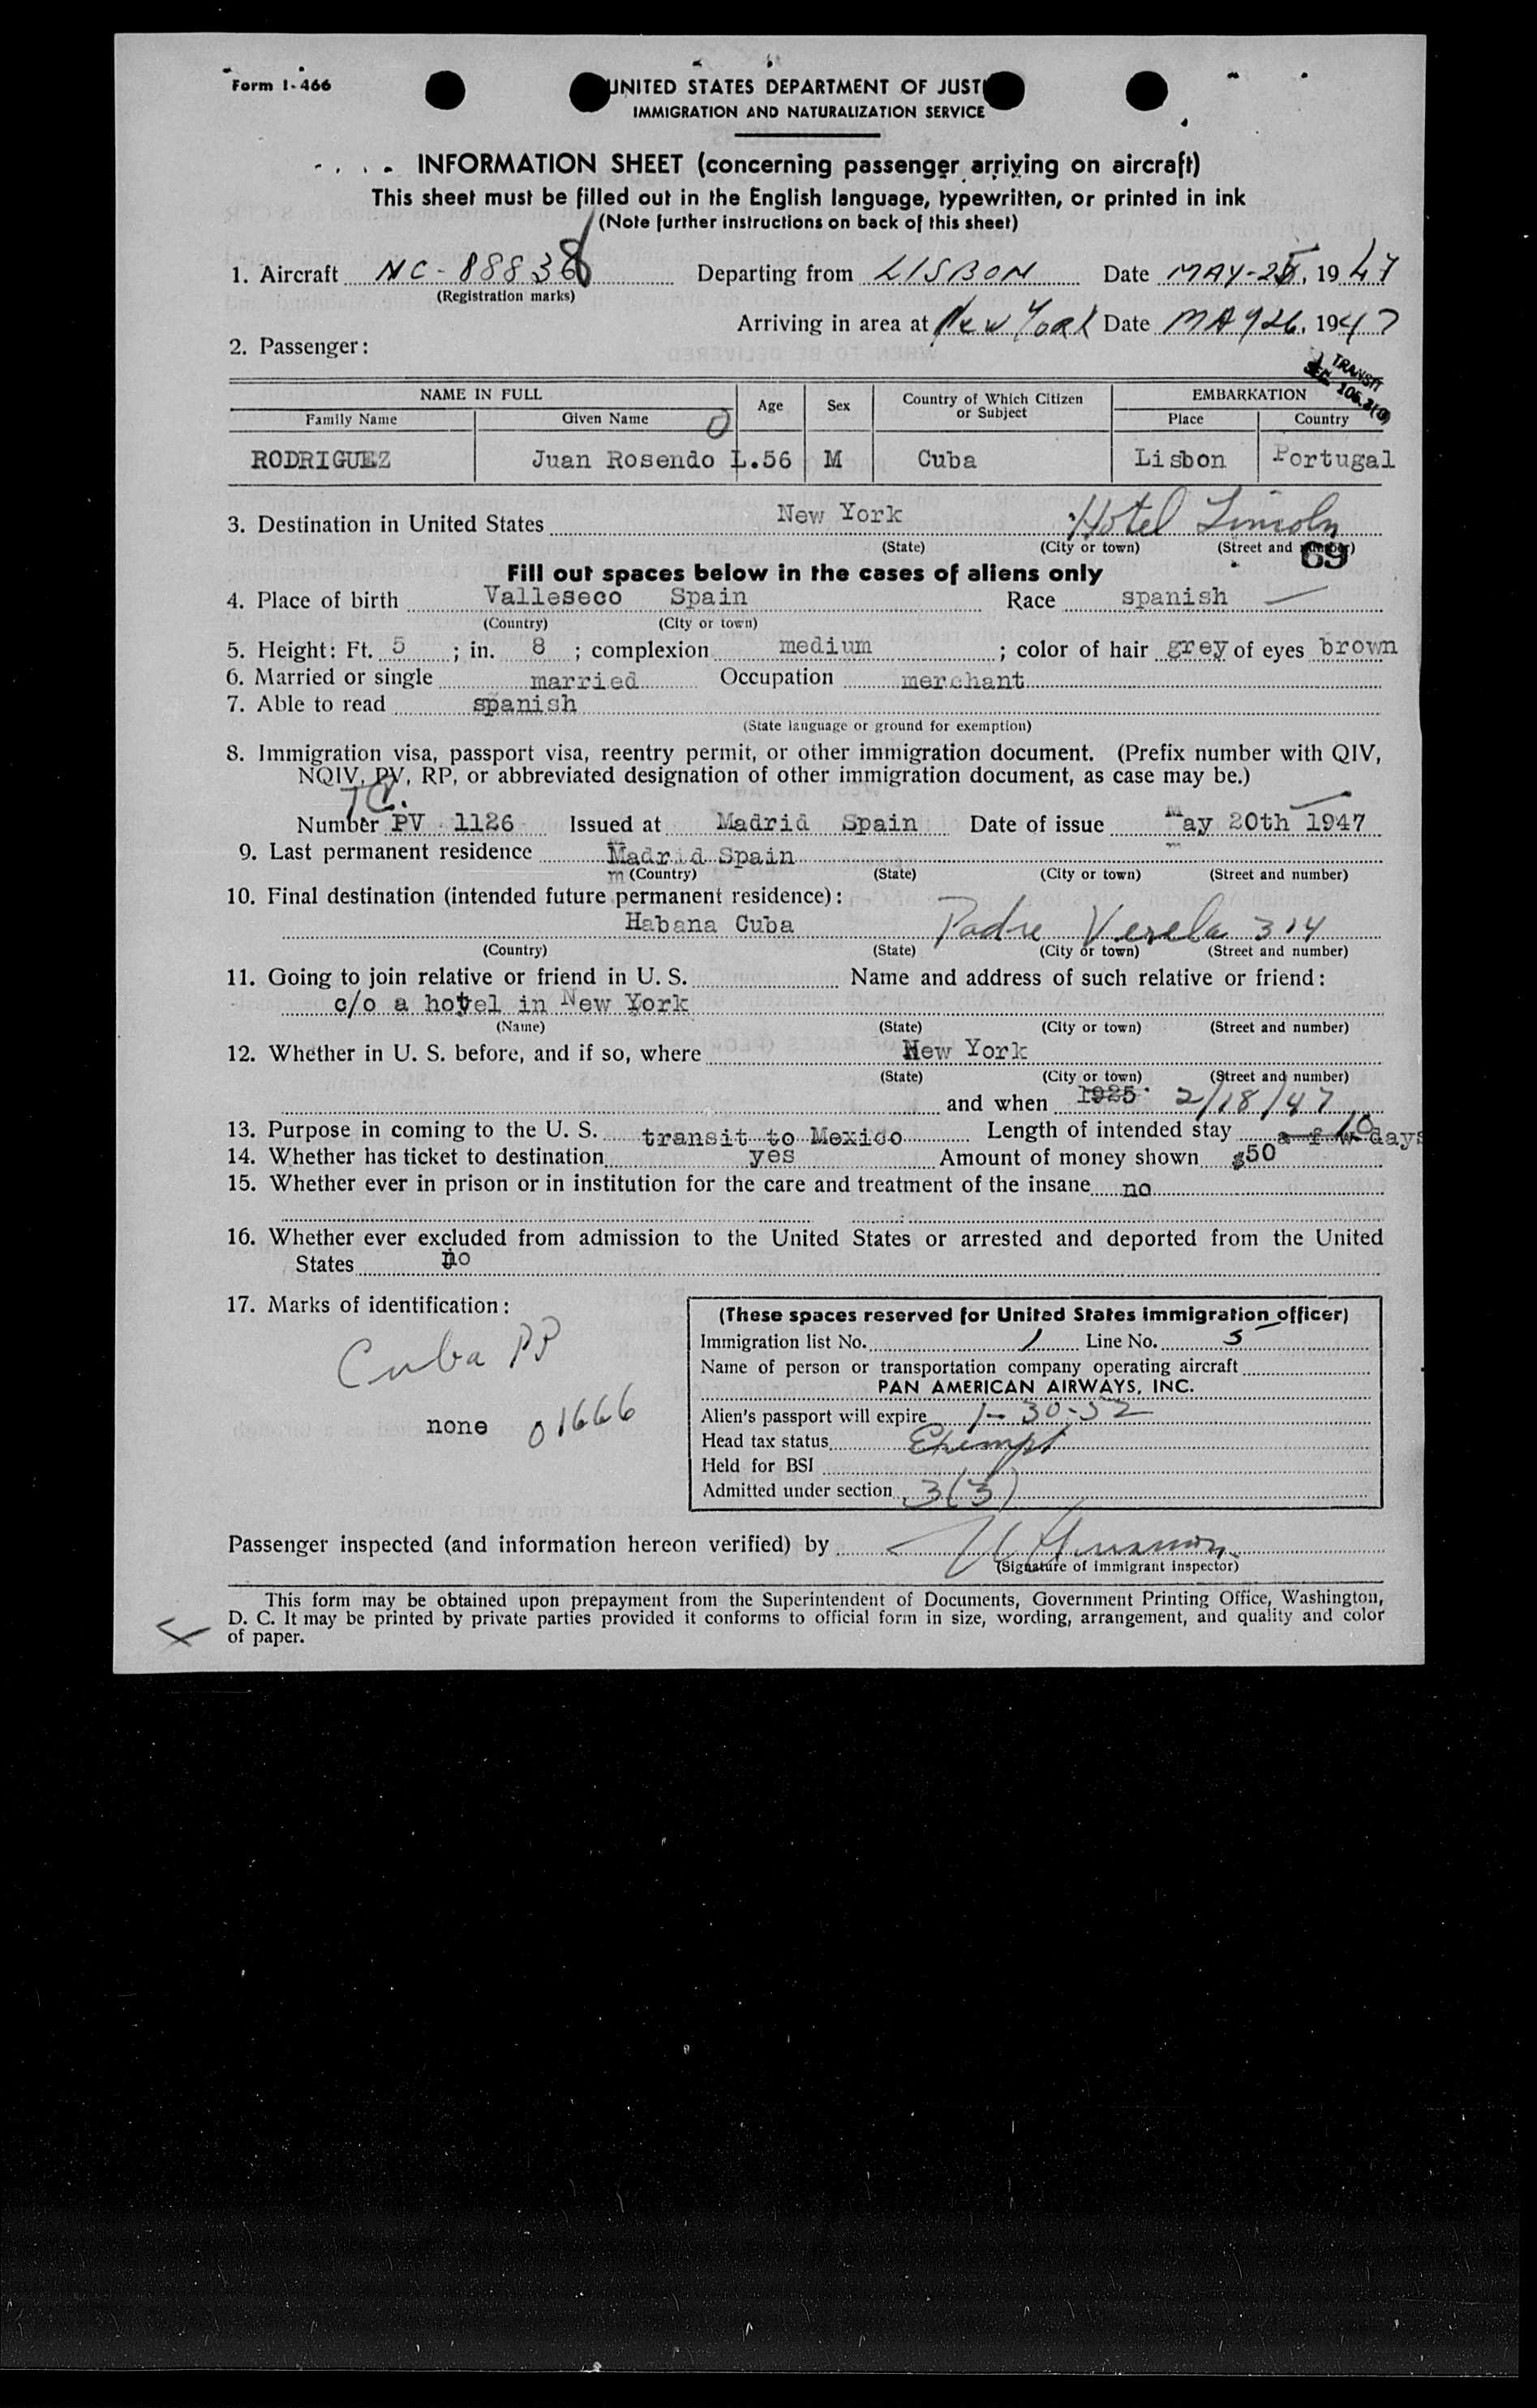 Form I-466
UNITED STATES DEPARTMENT OF JUSTI
IMMIGRATION AND NATURALIZATION SERVICE
INFORMATION SHEET (concerning passenger arriving on aircraft)
This sheet must be filled out in the English language, typewritten, or printed in ink
(Note further instructions on back of this sheet)
1. Aircraft NC-88838 Departing from LISBON Date MAY-25, 1947
(Registration marks)
Arriving in area at New York Date MAY 26, 1947
2. Passenger:
TRANSIT
SEC. 105.3(0)
NAME IN FULL Age Sex Country of Which Citizen or Subject EMBARKATION
Family Name Given Name Place Country
RODRIGUEZ Juan Rosendo L. 56 M Cuba Lisbon Portugal
3. Destination in United States New York Hotel Lincoln
(State) (City or town) (Street and number)
69
Fill out spaces below in the cases of aliens only
4. Place of birth Valleseco Spain Race spanish
(Country) (City or town)
5. Height: Ft. 5; in. 8; complexion medium; color of hair grey of eyes brown
6. Married or single married Occupation merchant
7. Able to read spanish
(State language or ground for exemption)
8. Immigration visa, passport visa, reentry permit, or other immigration document. (Prefix number with QIV,
NQIV, PV, RP, or abbreviated designation of other immigration document, as case may be.)
Number PV 1126 Issued at Madrid Spain Date of issue May 20th 1947
9. Last permanent residence Madrid Spain
(Country) (State) (City or town) (Street and number)
10. Final destination (intended future permanent residence):
Habana Cuba Padre Verela 314
(Country) (State) (City or town) (Street and number)
11. Going to join relative or friend in U. S. Name and address of such relative or friend:
c/o a hotel in New York
(Name) (State) (City or town) (Street and number)
12. Whether in U. S. before, and if so, where New York
(State) (City or town) (Street and number)
and when 1925 2/18/47
13. Purpose in coming to the U. S. transit to Mexico Length of intended stay a few 10 days
14. Whether has ticket to destination yes Amount of money shown $50
15. Whether ever in prison or in institution for the care and treatment of the insane no
16. Whether ever excluded from admission to the United States or arrested and deported from the United
States no
17. Marks of identification:
Cuba PP
none 01666
(These spaces reserved for United States immigration officer)
Immigration list No. 1 Line No. 5
Name of person or transportation company operating aircraft
PAN AMERICAN AIRWAYS, INC.
Alien's passport will expire 1-30-52
Head tax status Exempt
Held for BSI
Admitted under section 3(3)
Passenger inspected (and information hereon verified) by
(Signature of immigrant inspector)
This form may be obtained upon prepayment from the Superintendent of Documents, Government Printing Office, Washington,
D. C. It may be printed by private parties provided it conforms to official form in size, wording, arrangement, and quality and color
of paper.